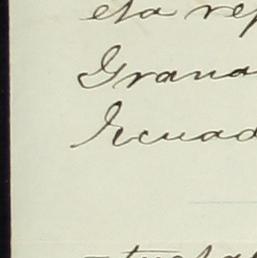 eta rep
Grana
Ecuad